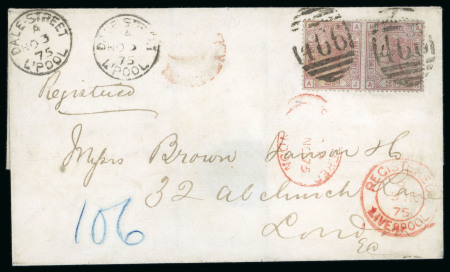 DALE-STREET
A
NO 3
75
L'POOL
DALE-STREET
A
NO 3
75
L'POOL
466
466
Registered
REGISTERED
75
LIVERPOOL
Messrs Brown Janson & Co
32 Abchurch Lane
Lond
EC
106